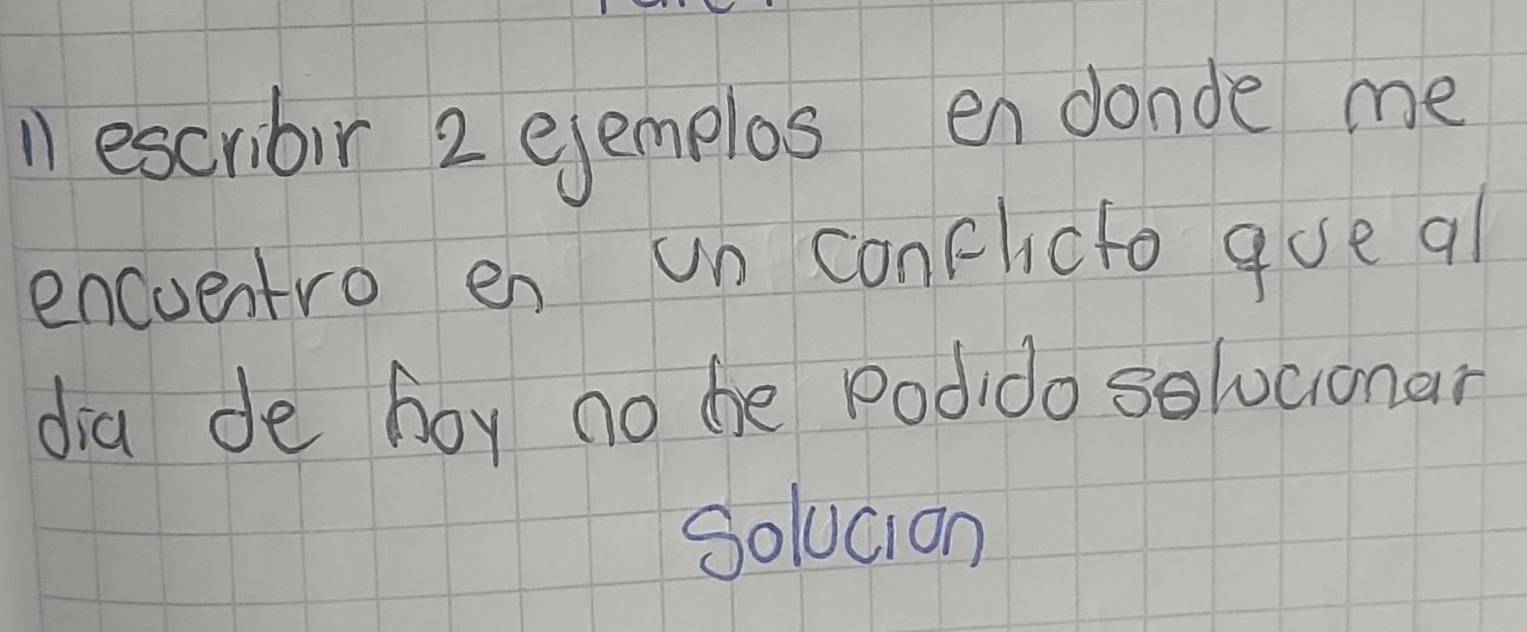 1) escribir 2 ejemplos en donde me
encuentro en un conflicto que al
dia de hoy no he podido solucionar
Solucion